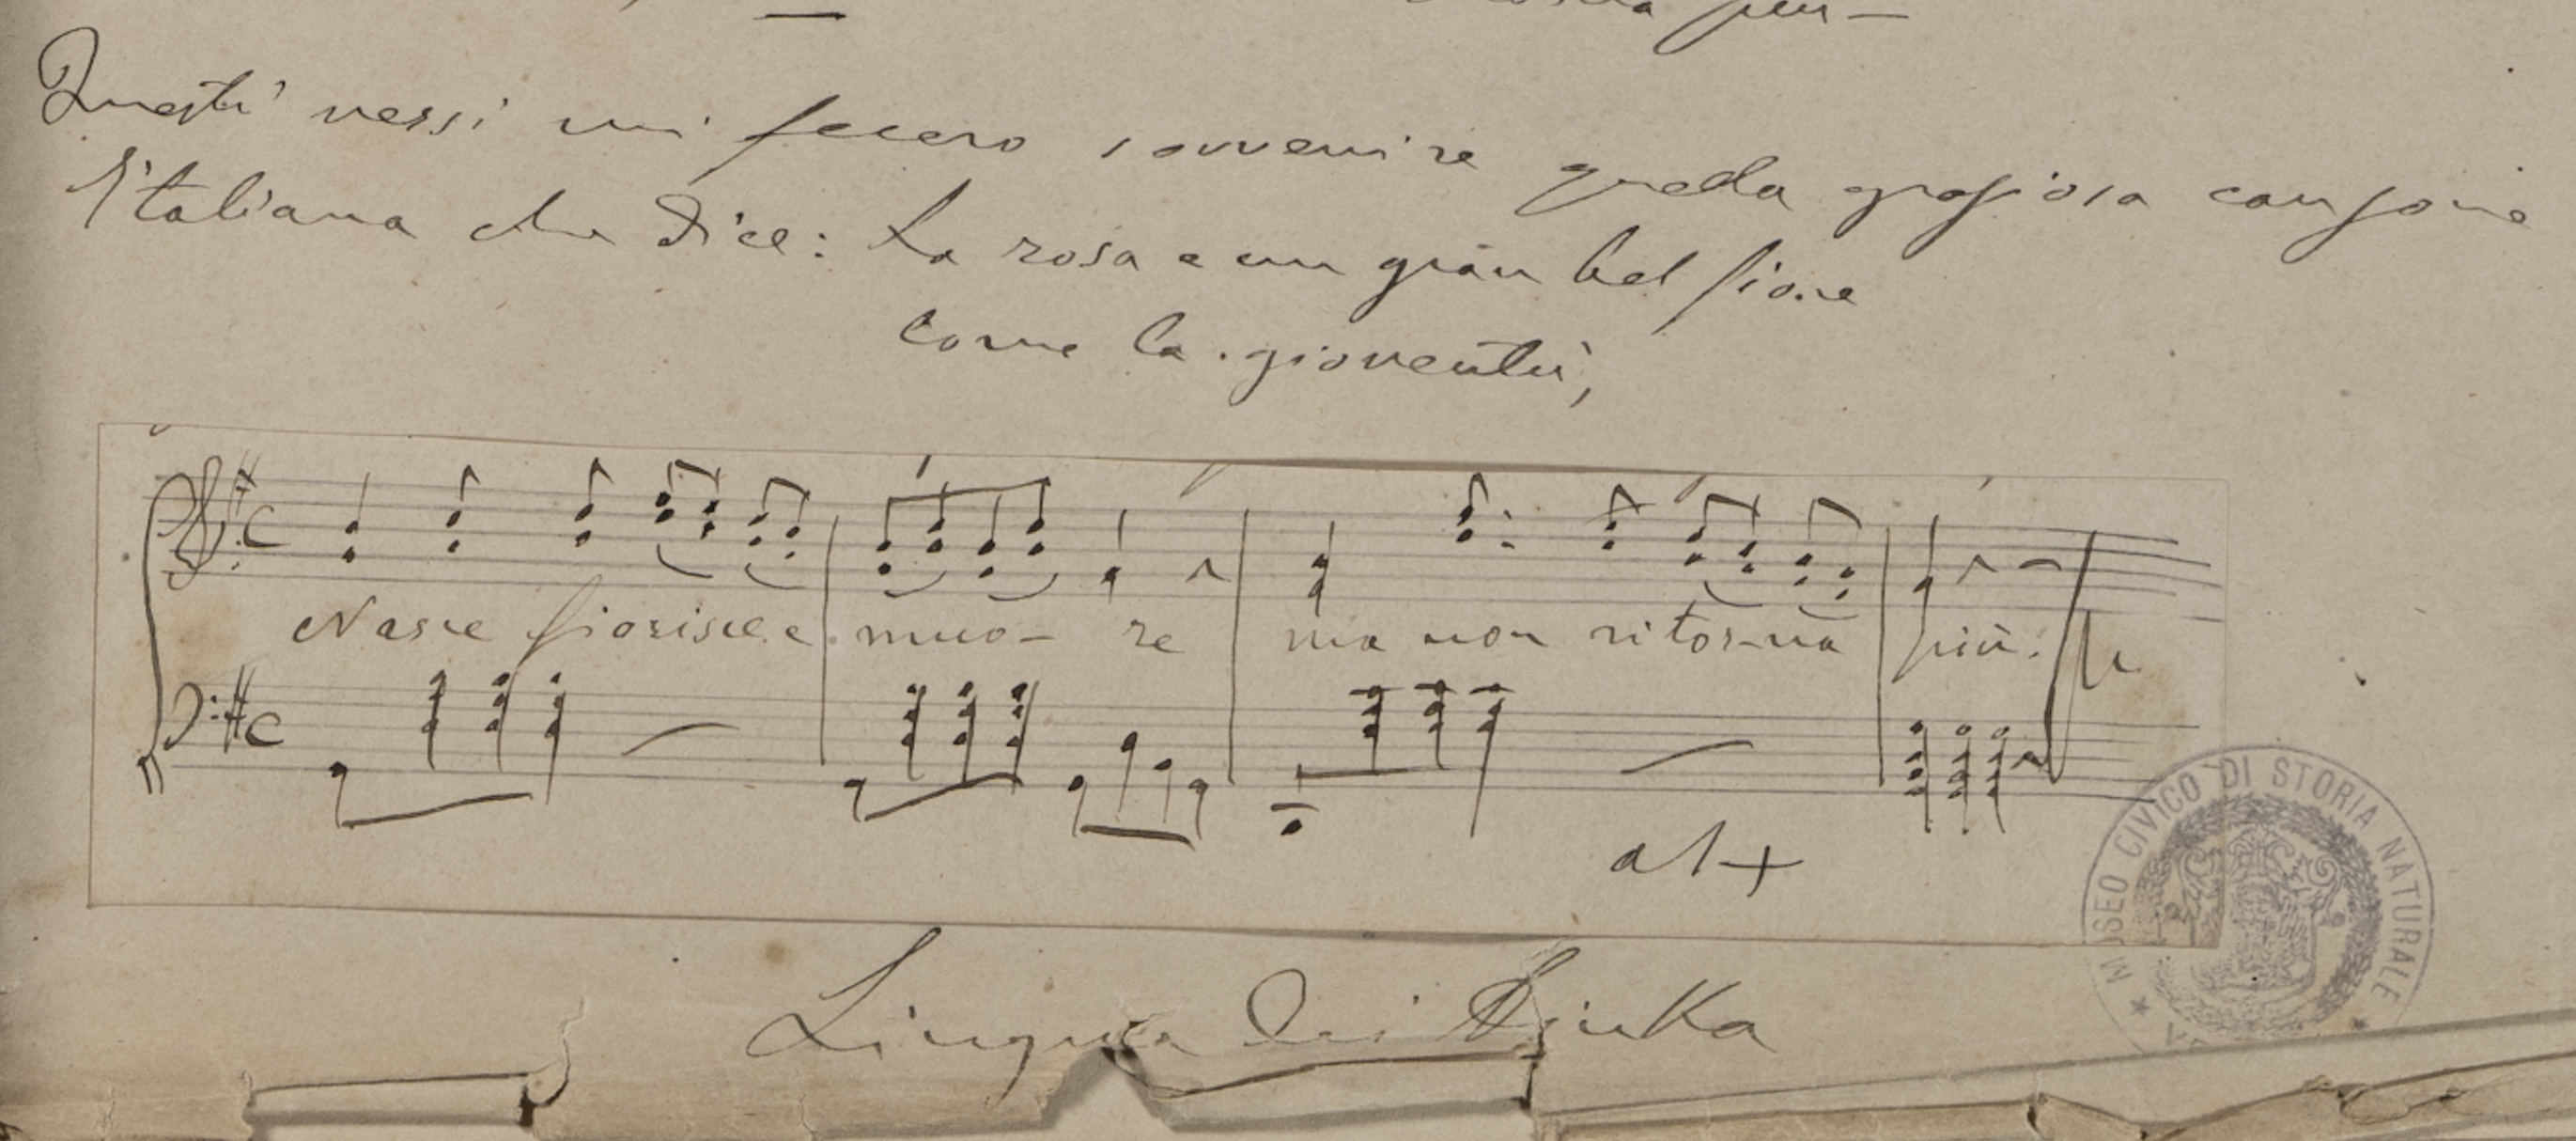 Questi versi mi fecero sovvenire quella graziosa canzone
Italiana che dice: La rosa e un gran bel fiore
come la gioventù,
Nasce fiorisce e muo- re ma non ritor-na più.
al +
Lingua dei Dinka
MUSEO CIVICO DI STORIA NATURALE